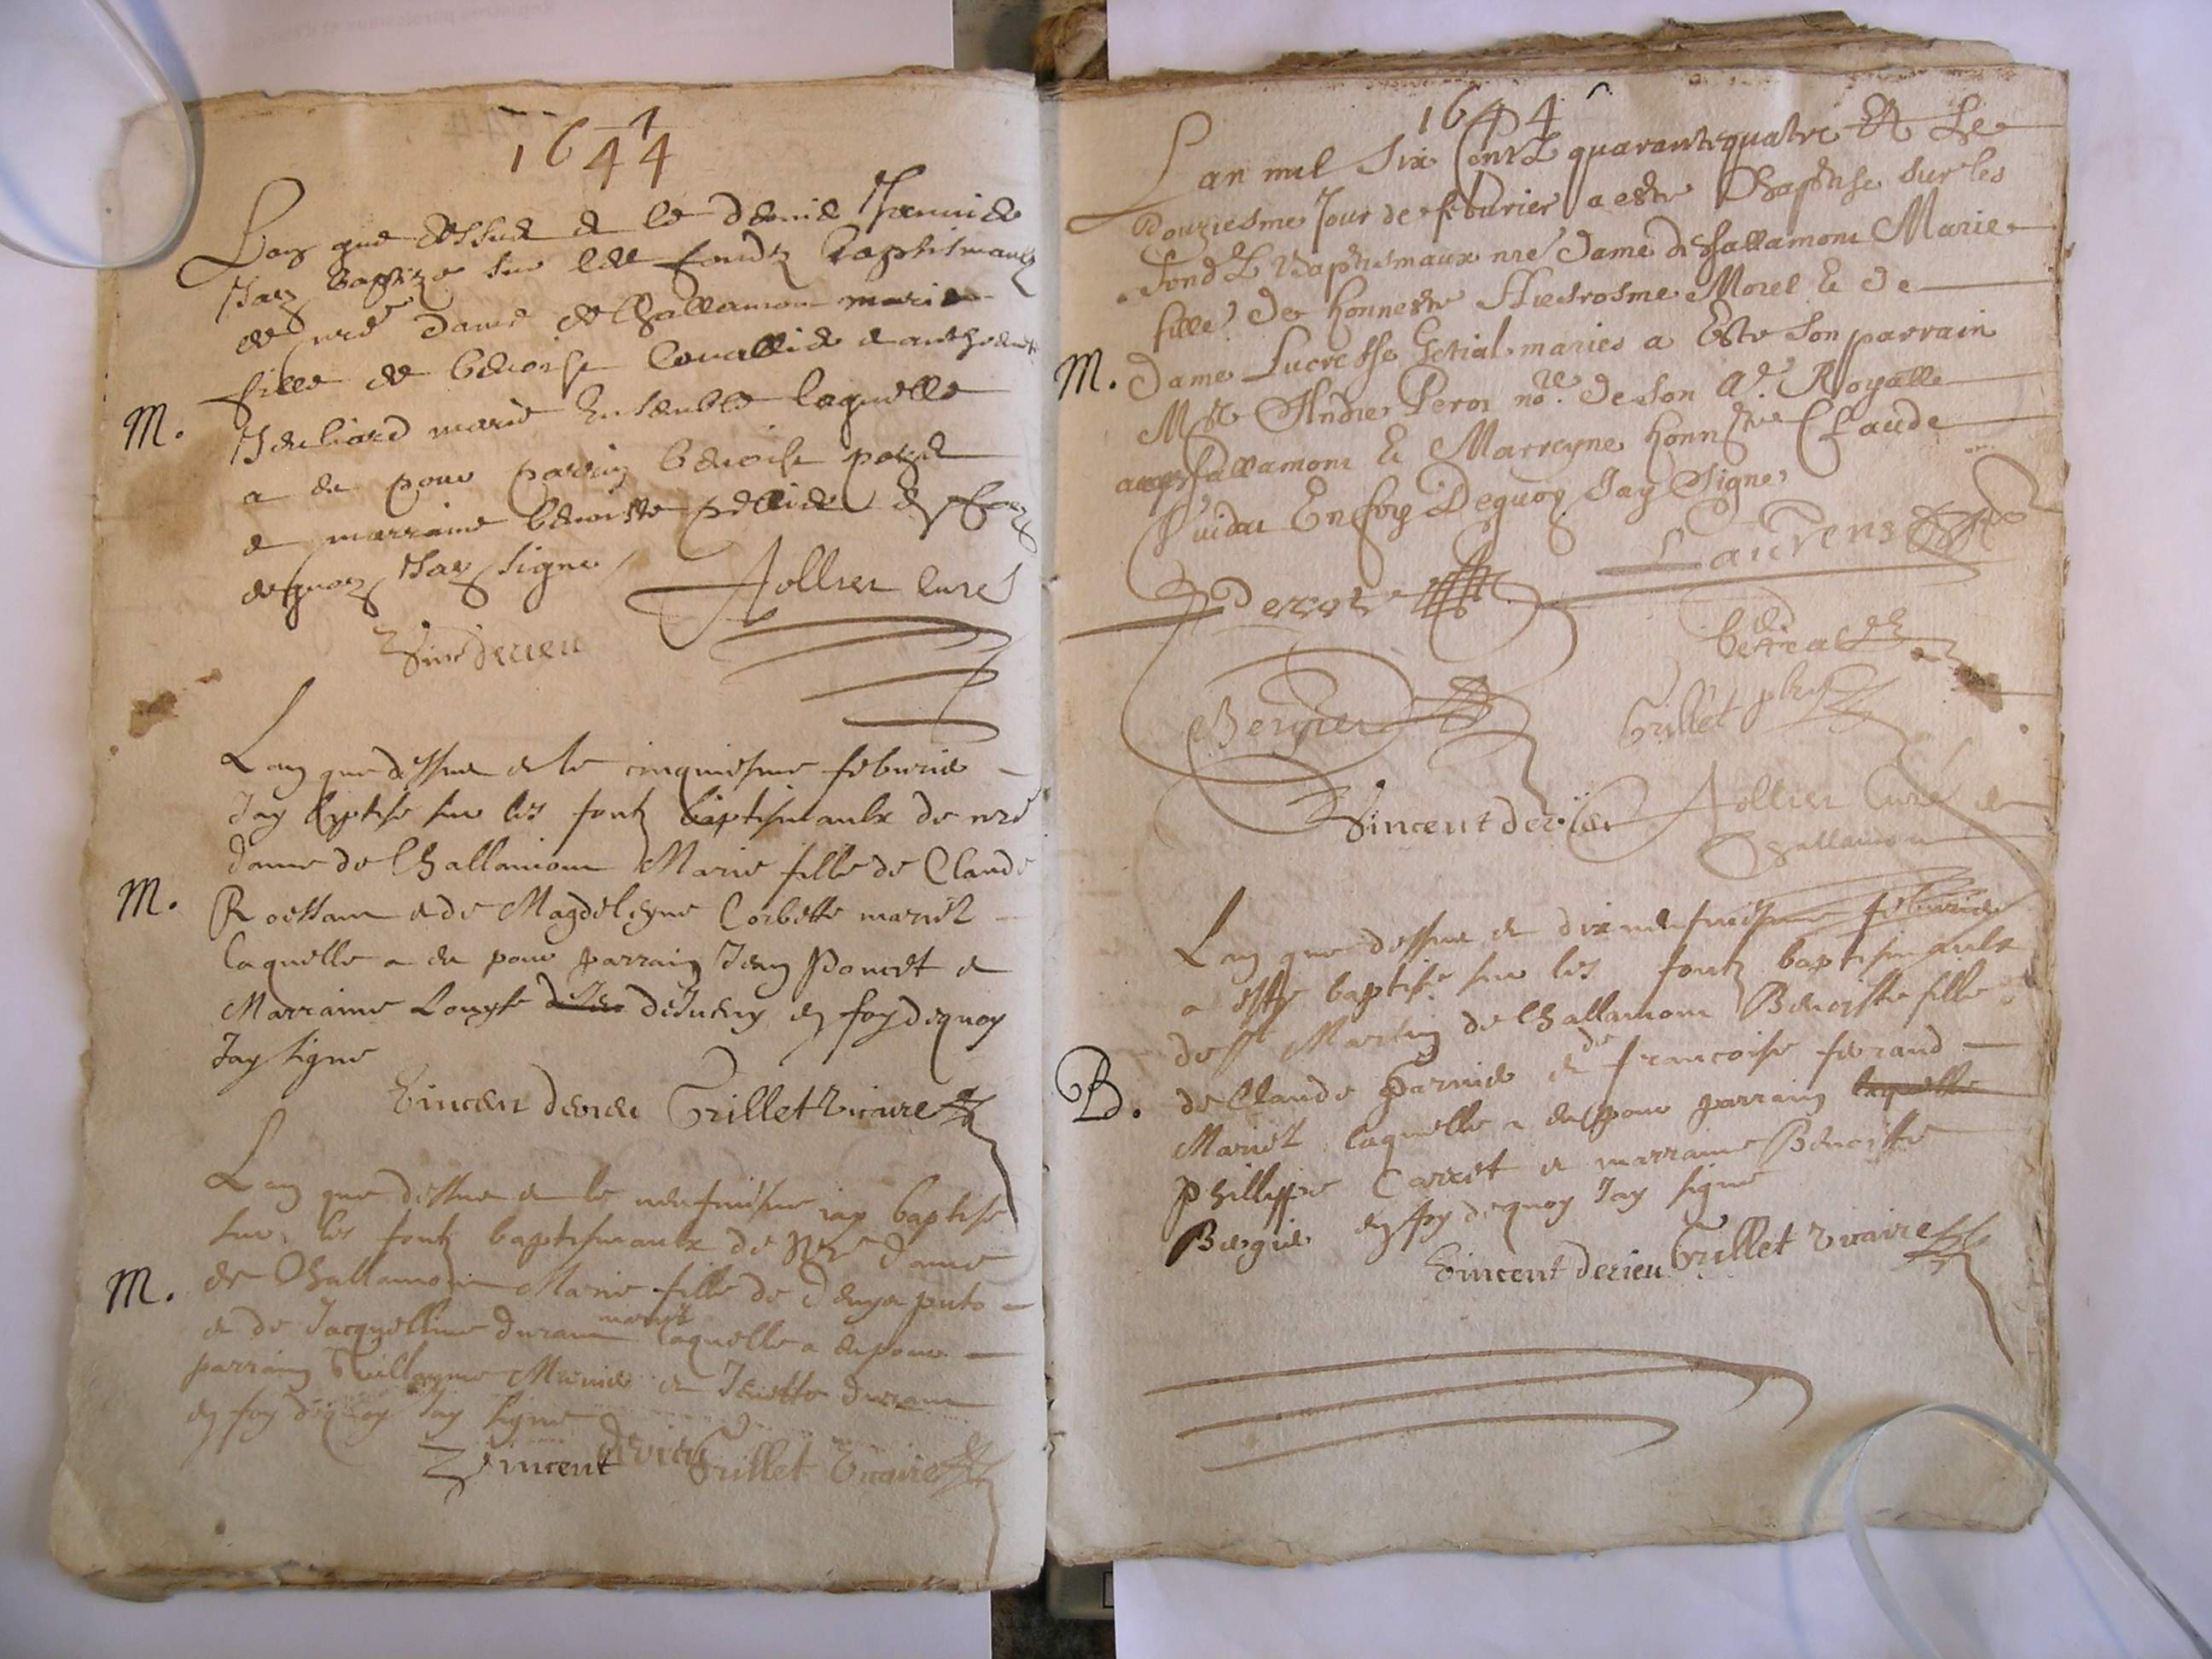 1644
Lan que dessus & le dernier Janvier
Jay baptize sur les fondz baptismaux
de nre dame de Challamon marie
fille de benoist & anthoinette
M.
mariés Ensemble laquelle
a eu pour parrin benoist
& marraine benoiste en foy
dequoy Jay signe
Jollier Curé
Vincent derieu
Lan que dessus & le cinquiesme febvrier
Jay baptisé sur les fontz baptismaulx de nre
dame de Challamont Marie fille de Claude
M.
& de Magdeleyne Corbette mariés
laquelle a eu pour parrain Jean Poncet &
Marraine Louyse en foy dequoy
Jay signé
Vincent derieu Grillet Vicaire
Lan que dessus & le neufviesme jay baptisé
sur les fontz baptismaulx de Nre dame
M.
de Challamont Marie fille de Denys puto
& de Jacquelline Durant mariés laquelle a eu pour
parrain Guillayme & Durant
en foy dequoy Jay signé
Vincent derieu Grillet Vicaire
1644
Lan mil Six Centz quarantequatre Et Le
Douziesme Jour de febvrier a este Baptise sur les
fondz Baptismaux nre Dame de Challamont Marie
fille De honneste Hierosme Morel & de
M.
Dame Lucresse Getial maries a Este Son parrain
Mre Andre Perot nore De Son A. Royalle
audit Challamont & Marreyne honneste Claude
En foy Dequoy Jay Signe
Laurens
Perot
Getial
Bergier
Grillet pbre
Vincent derieu Jollier Curé de
Challamont
Lan que dessus & dix neufviesme febvrier
a esté baptisé sur les fontz baptismaulx
de St Martin de Challamont Benoiste fille
B.
de Claude Garnier & de francoise ferrand
Mariés laquelle a eu pour parrain laquelle
Phillippe & marraine Benoiste
Bergier en foy dequoy Jay signé
Vincent derieu Grillet Vicaire